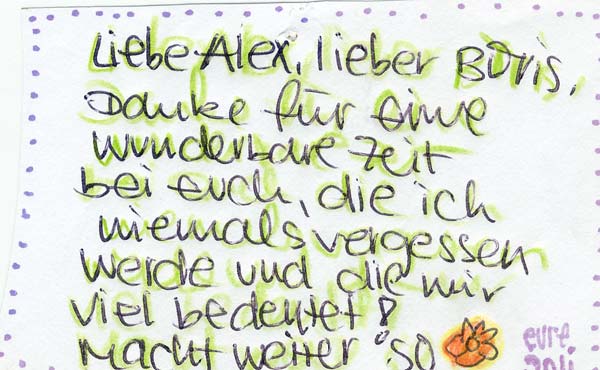 Liebe Alex, lieber Boris,
Danke für eine
wunderbare Zeit
bei euch, die ich
niemals vergessen
werde und die mir
viel bedeutet!
Macht weiter so
eure